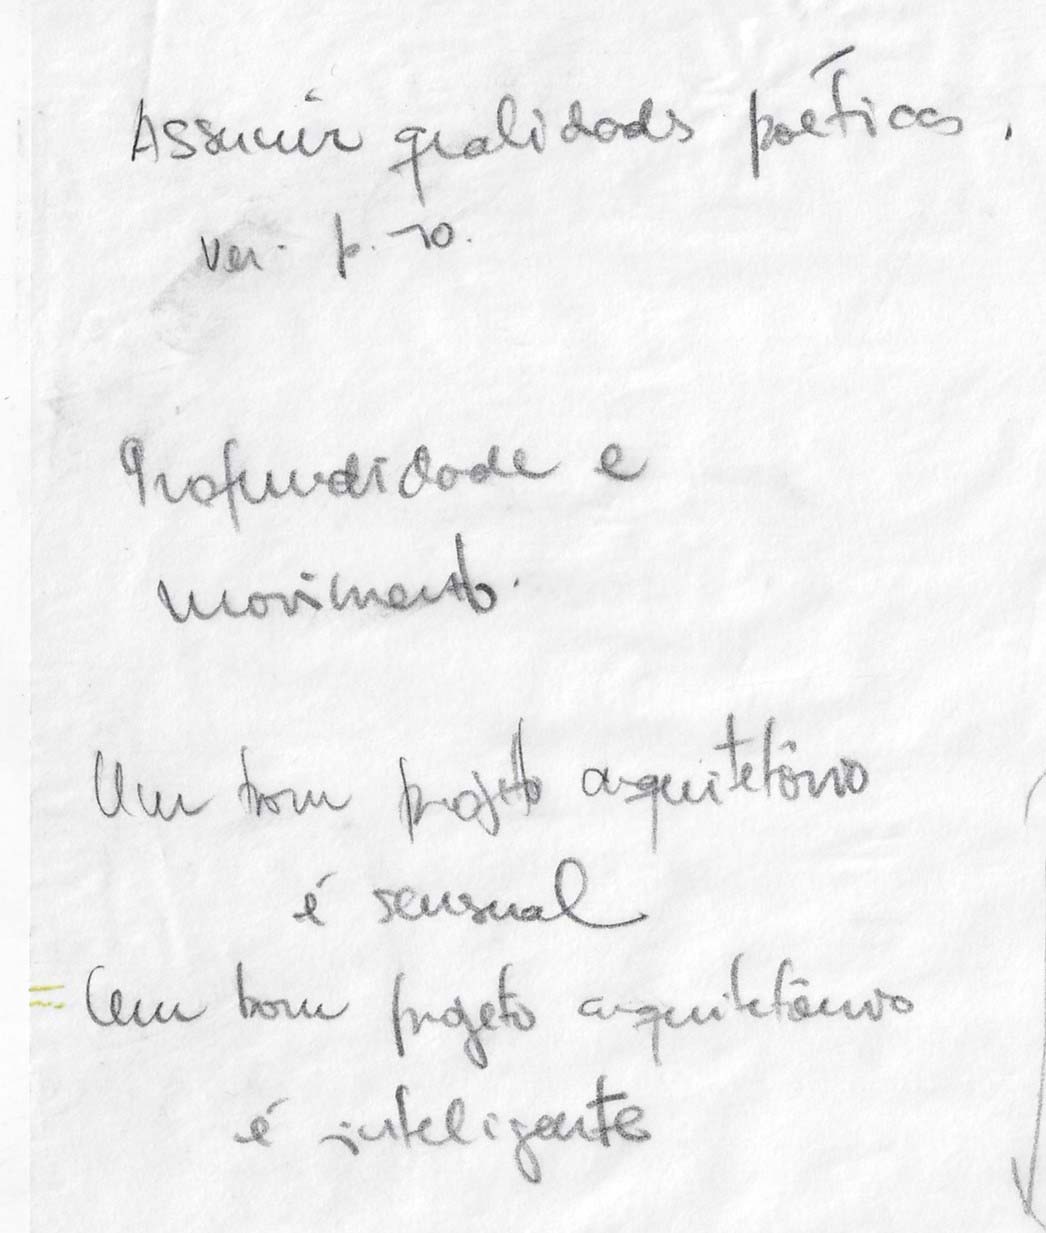 Assumir qualidades poéticas.
ver. p. 70.
Profundidade e
movimento.
Um bom projeto arquitetônico
é sensual
Um bom projeto arquitetônico
é inteligente